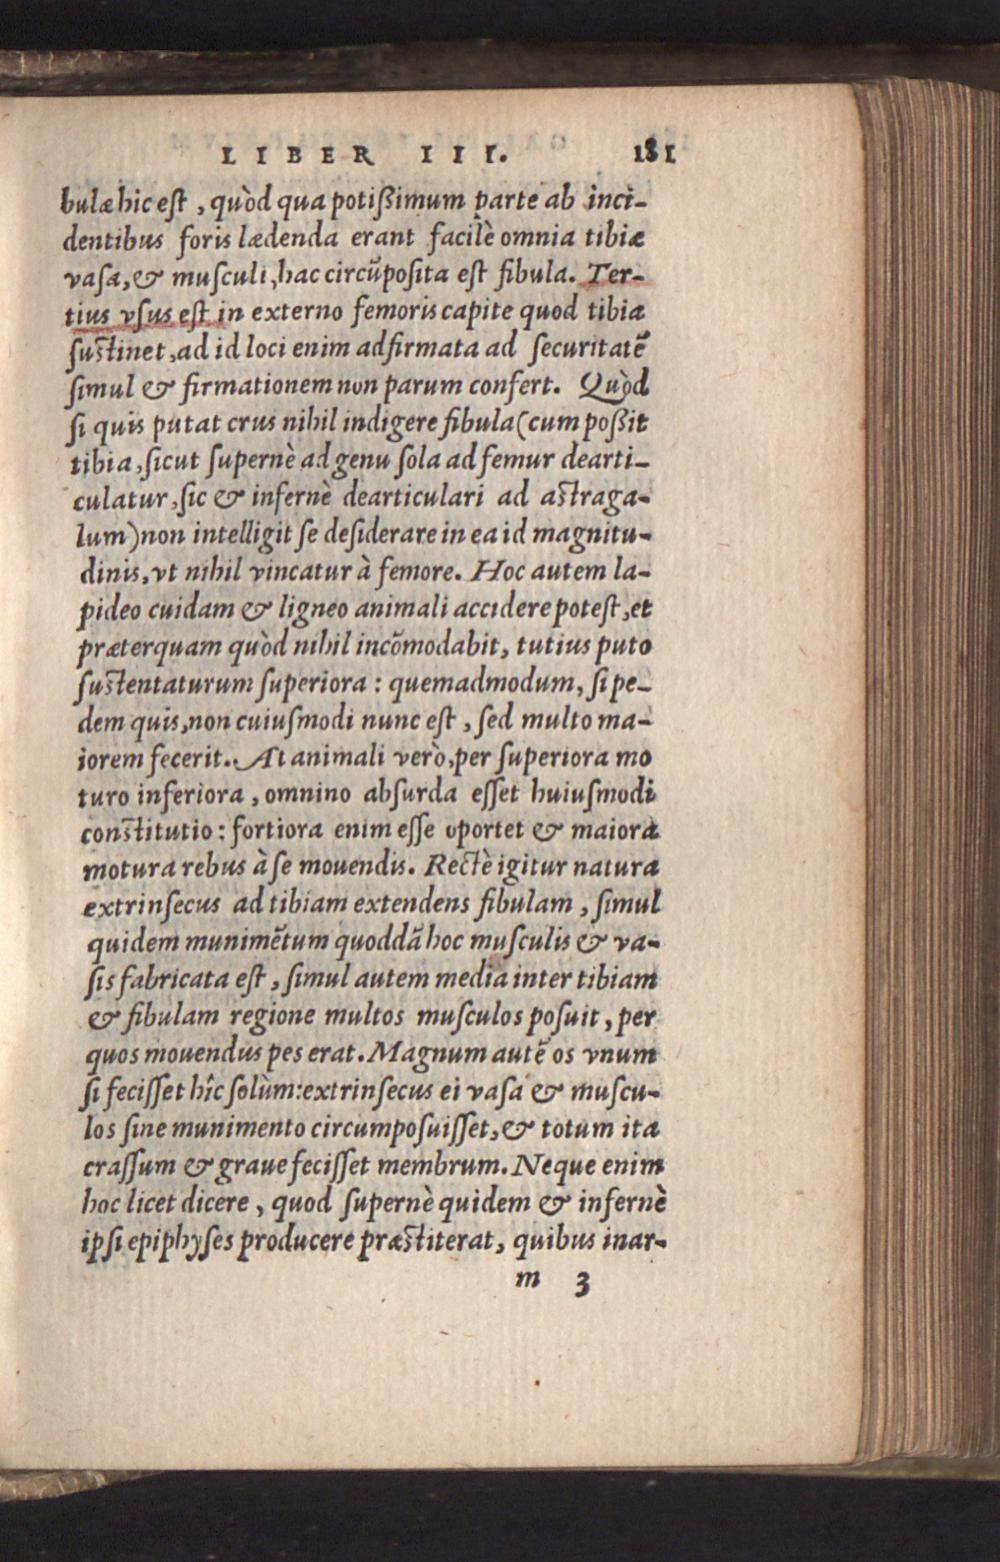 LIBER III. 181
bulæ hic est, quòd qua potißimum parte ab inci-
dentibus foris lædenda erant facilè omnia tibiæ
vasa, & musculi, hac circūposita est fibula. Ter-
tius vsus est in externo femoris capite quod tibia
sustinet, ad id loci enim adfirmata ad securitatē
simul & firmationem non parum confert. Quòd
si quis putat crus nihil indigere fibula (cum poßit
tibia, sicut supernè ad genu sola ad femur dearti-
culatur, sic & infernè dearticulari ad astraga-
lum) non intelligit se desiderare in ea id magnitu-
dinis, vt nihil vincatur à femore. Hoc autem la-
pideo cuidam & ligneo animali accidere potest, et
præterquam quòd nihil incōmodabit, tutius puto
sustentaturum superiora: quemadmodum, si pe-
dem quis, non cuiusmodi nunc est, sed multo ma-
iorem fecerit. At animali verò, per superiora mo
turo inferiora, omnino absurda esset huiusmodi
constitutio: fortiora enim esse oportet & maiora
motura rebus à se mouendis. Rectè igitur natura
extrinsecus ad tibiam extendens fibulam, simul
quidem munimētum quoddā hoc musculis & va-
sis fabricata est, simul autem media inter tibiam
& fibulam regione multos musculos posuit, per
quos mouendus pes erat. Magnum autē os vnum
si fecisset hîc solùm: extrinsecus ei vasa & muscu-
los sine munimento circumposuisset, & totum ita
crassum & graue fecisset membrum. Neque enim
hoc licet dicere, quod supernè quidem & infernè
ipsi epiphyses producere præstiterat, quibus inar-
m 3